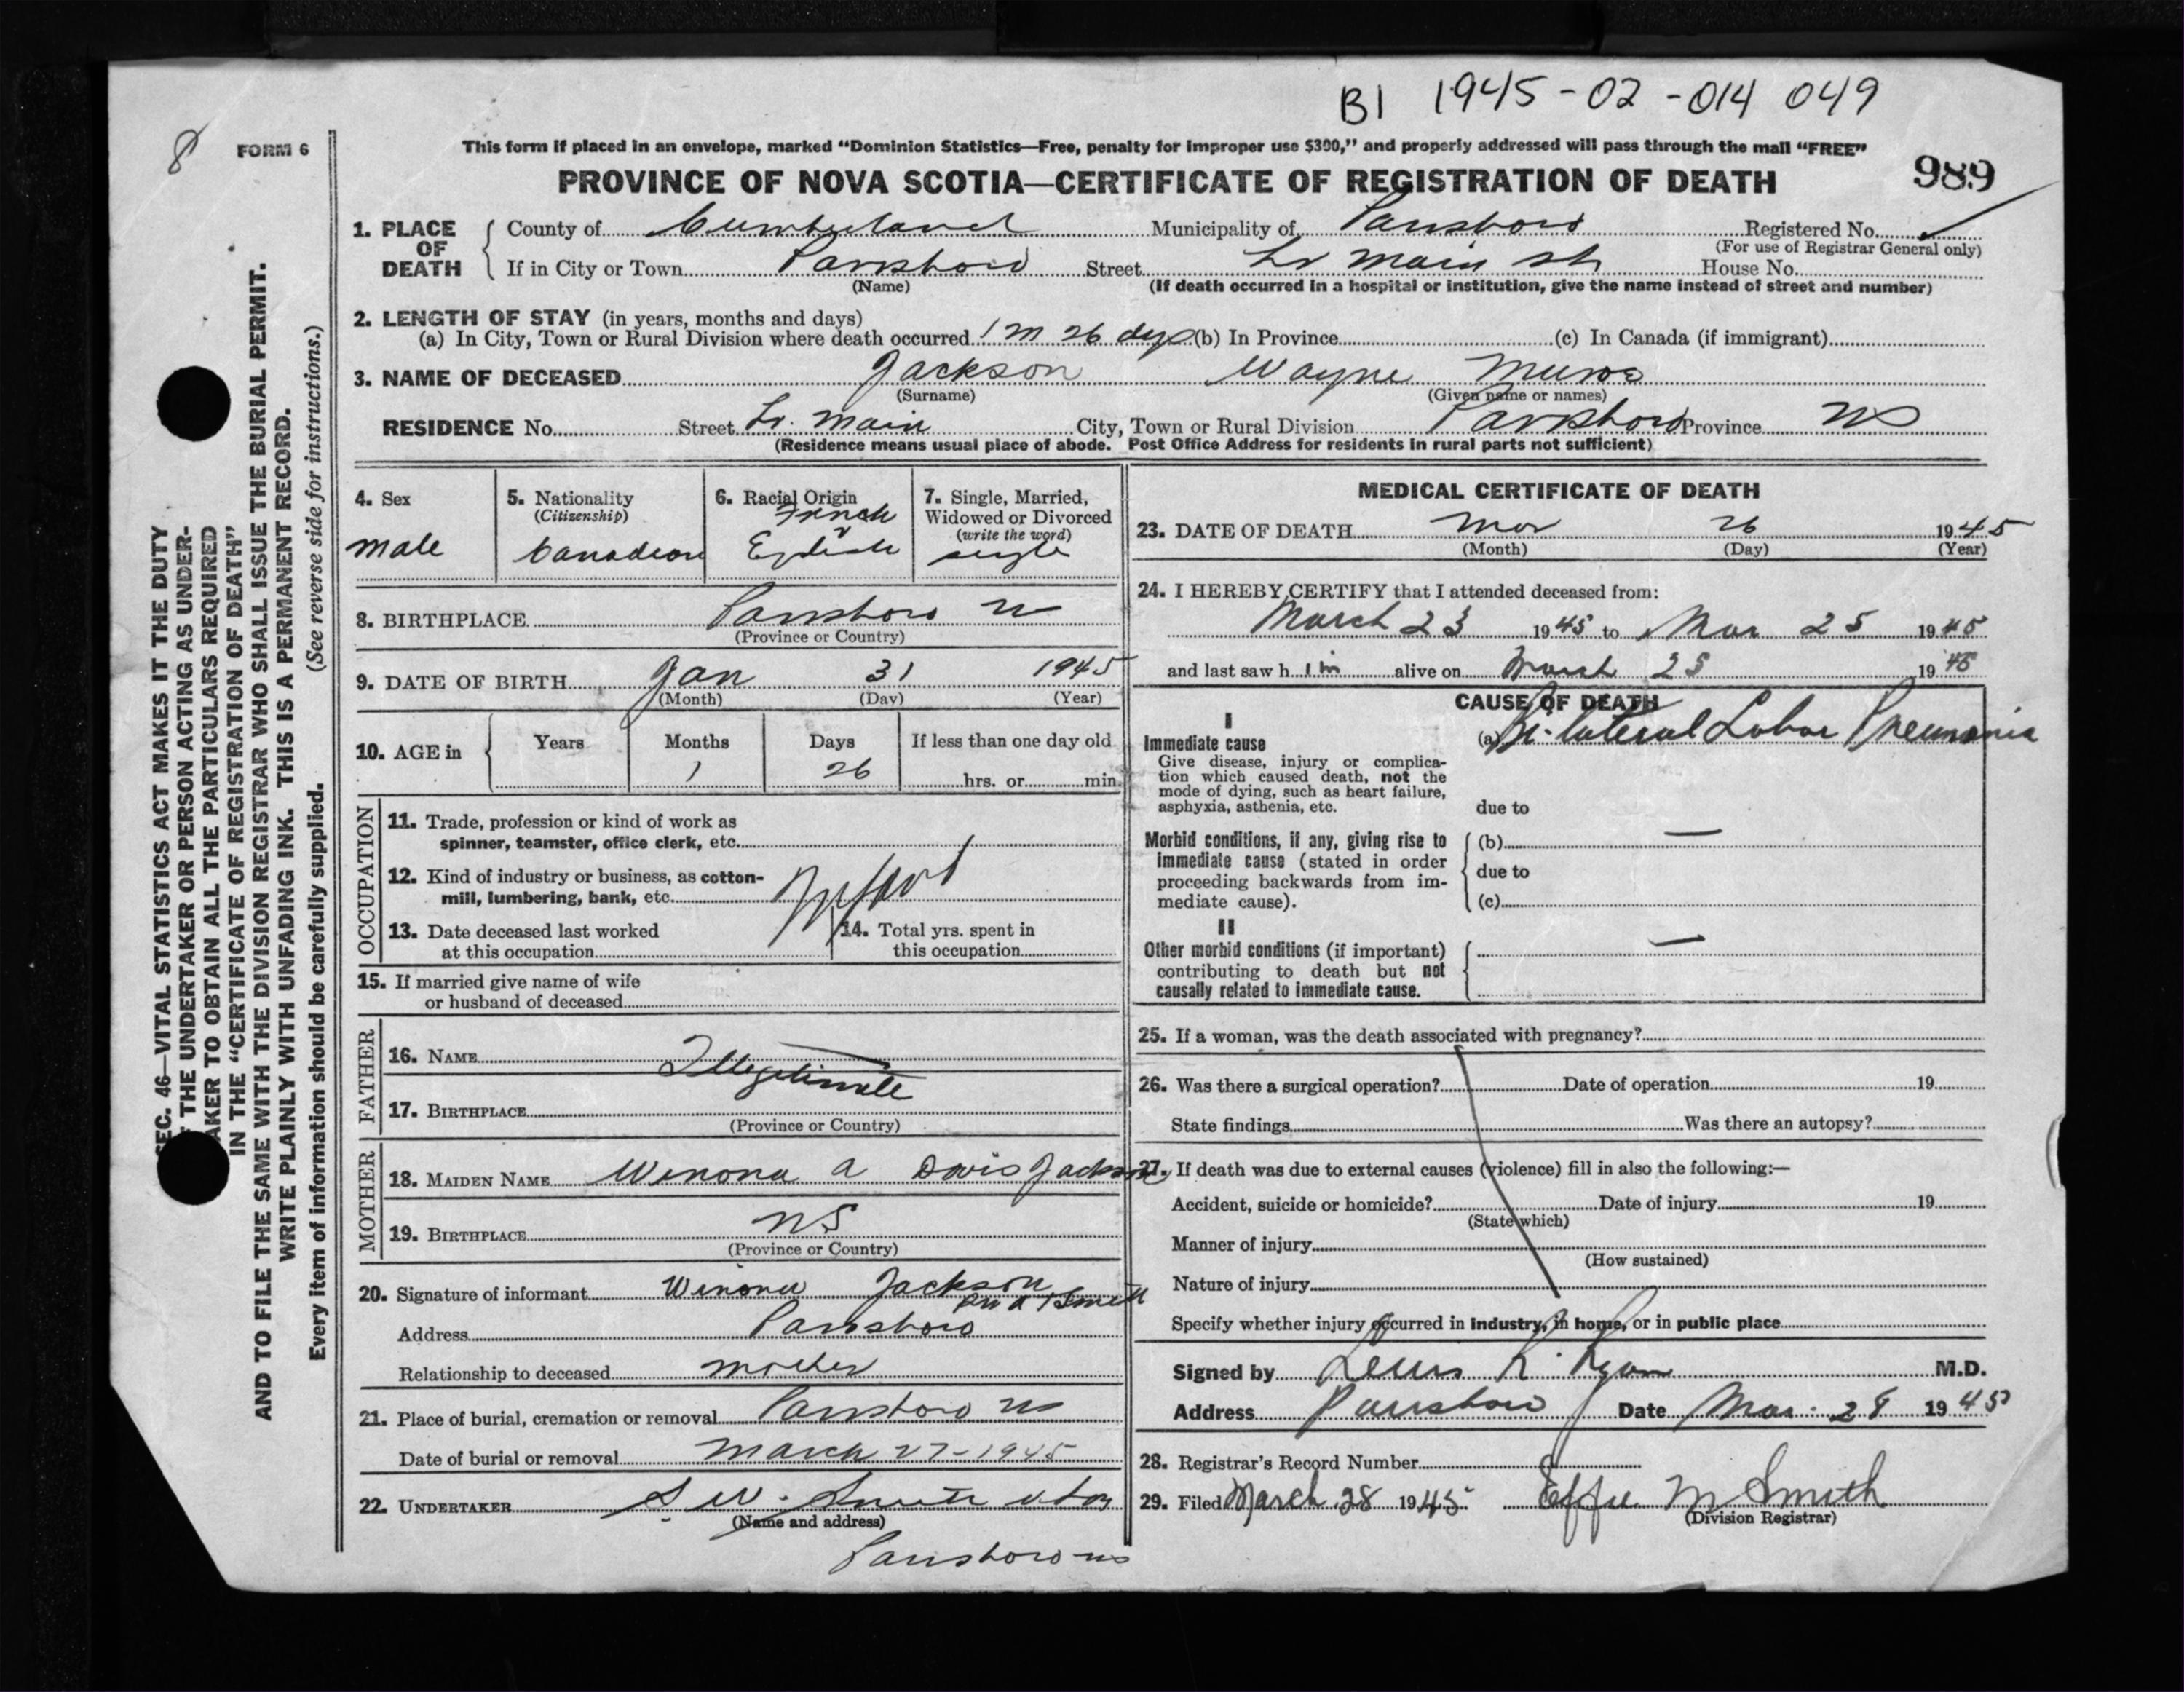 B1 1945-02-014 049
8
FORM 6
This form if placed in an envelope, marked "Dominion Statistics—Free, penalty for improper use $300," and properly addressed will pass through the mail "FREE"
PROVINCE OF NOVA SCOTIA—CERTIFICATE OF REGISTRATION OF DEATH
989
1. PLACE OF DEATH
County of Cumberland Municipality of Parrsboro Registered No.
(For use of Registrar General only)
If in City or Town Parrsboro Street Lr Main St House No.
(Name)
(If death occurred in a hospital or institution, give the name instead of street and number)
2. LENGTH OF STAY (in years, months and days)
(a) In City, Town or Rural Division where death occurred 1 m 26 dys (b) In Province (c) In Canada (if immigrant)
3. NAME OF DECEASED Jackson Wayne
(Surname) (Given name or names)
RESIDENCE No. Street Lr. Main City, Town or Rural Division Parrsboro Province NS
(Residence means usual place of abode. Post Office Address for residents in rural parts not sufficient)
4. Sex
male
5. Nationality
(Citizenship)
Canadian
6. Racial Origin
French
English
7. Single, Married,
Widowed or Divorced
(write the word)
single
8. BIRTHPLACE Parrsboro NS
(Province or Country)
9. DATE OF BIRTH Jan 31 1945
(Month) (Day) (Year)
10. AGE in
Years Months Days If less than one day old
1 26 hrs. or min.
OCCUPATION
11. Trade, profession or kind of work as
spinner, teamster, office clerk, etc.
12. Kind of industry or business, as cotton-
mill, lumbering, bank, etc. Infant
13. Date deceased last worked
at this occupation
14. Total yrs. spent in
this occupation
15. If married give name of wife
or husband of deceased
FATHER
16. NAME Illegitimate
17. BIRTHPLACE
(Province or Country)
MOTHER
18. MAIDEN NAME Winona A Davis Jackson
19. BIRTHPLACE NS
(Province or Country)
20. Signature of informant Winona Jackson
Smith
Address Parrsboro
Relationship to deceased mother
21. Place of burial, cremation or removal Parrsboro NS
Date of burial or removal March 27-1945
22. UNDERTAKER S W. Smith
(Name and address)
Parrsboro NS
MEDICAL CERTIFICATE OF DEATH
23. DATE OF DEATH Mar 26 1945
(Month) (Day) (Year)
24. I HEREBY CERTIFY that I attended deceased from:
March 23 1945 to Mar 25 1945
and last saw him alive on March 25 1945
CAUSE OF DEATH
I
Immediate cause
Give disease, injury or complica-
tion which caused death, not the
mode of dying, such as heart failure,
asphyxia, asthenia, etc.
(a) Bi-lateral Lobar Pneumonia
due to
Morbid conditions, if any, giving rise to
immediate cause (stated in order
proceeding backwards from im-
mediate cause).
(b) —
due to
(c)
II
Other morbid conditions (if important)
contributing to death but not
causally related to immediate cause.
—
25. If a woman, was the death associated with pregnancy?
26. Was there a surgical operation? Date of operation 19
State findings Was there an autopsy?
27. If death was due to external causes (violence) fill in also the following:—
Accident, suicide or homicide? Date of injury 19
(State which)
Manner of injury
(How sustained)
Nature of injury
Specify whether injury occurred in industry, in home, or in public place
Signed by Lewis R. Ryan M.D.
Address Parrsboro Date Mar. 28 1945
28. Registrar's Record Number
29. Filed March 28 1945 Effie M Smith
(Division Registrar)
SEC. 46—VITAL STATISTICS ACT MAKES IT THE DUTY
THE UNDERTAKER OR PERSON ACTING AS UNDER-
AKER TO OBTAIN ALL THE PARTICULARS REQUIRED
IN THE "CERTIFICATE OF REGISTRATION OF DEATH"
AND TO FILE THE SAME WITH THE DIVISION REGISTRAR WHO SHALL ISSUE THE BURIAL PERMIT.
WRITE PLAINLY WITH UNFADING INK. THIS IS A PERMANENT RECORD.
Every item of information should be carefully supplied. (See reverse side for instructions.)